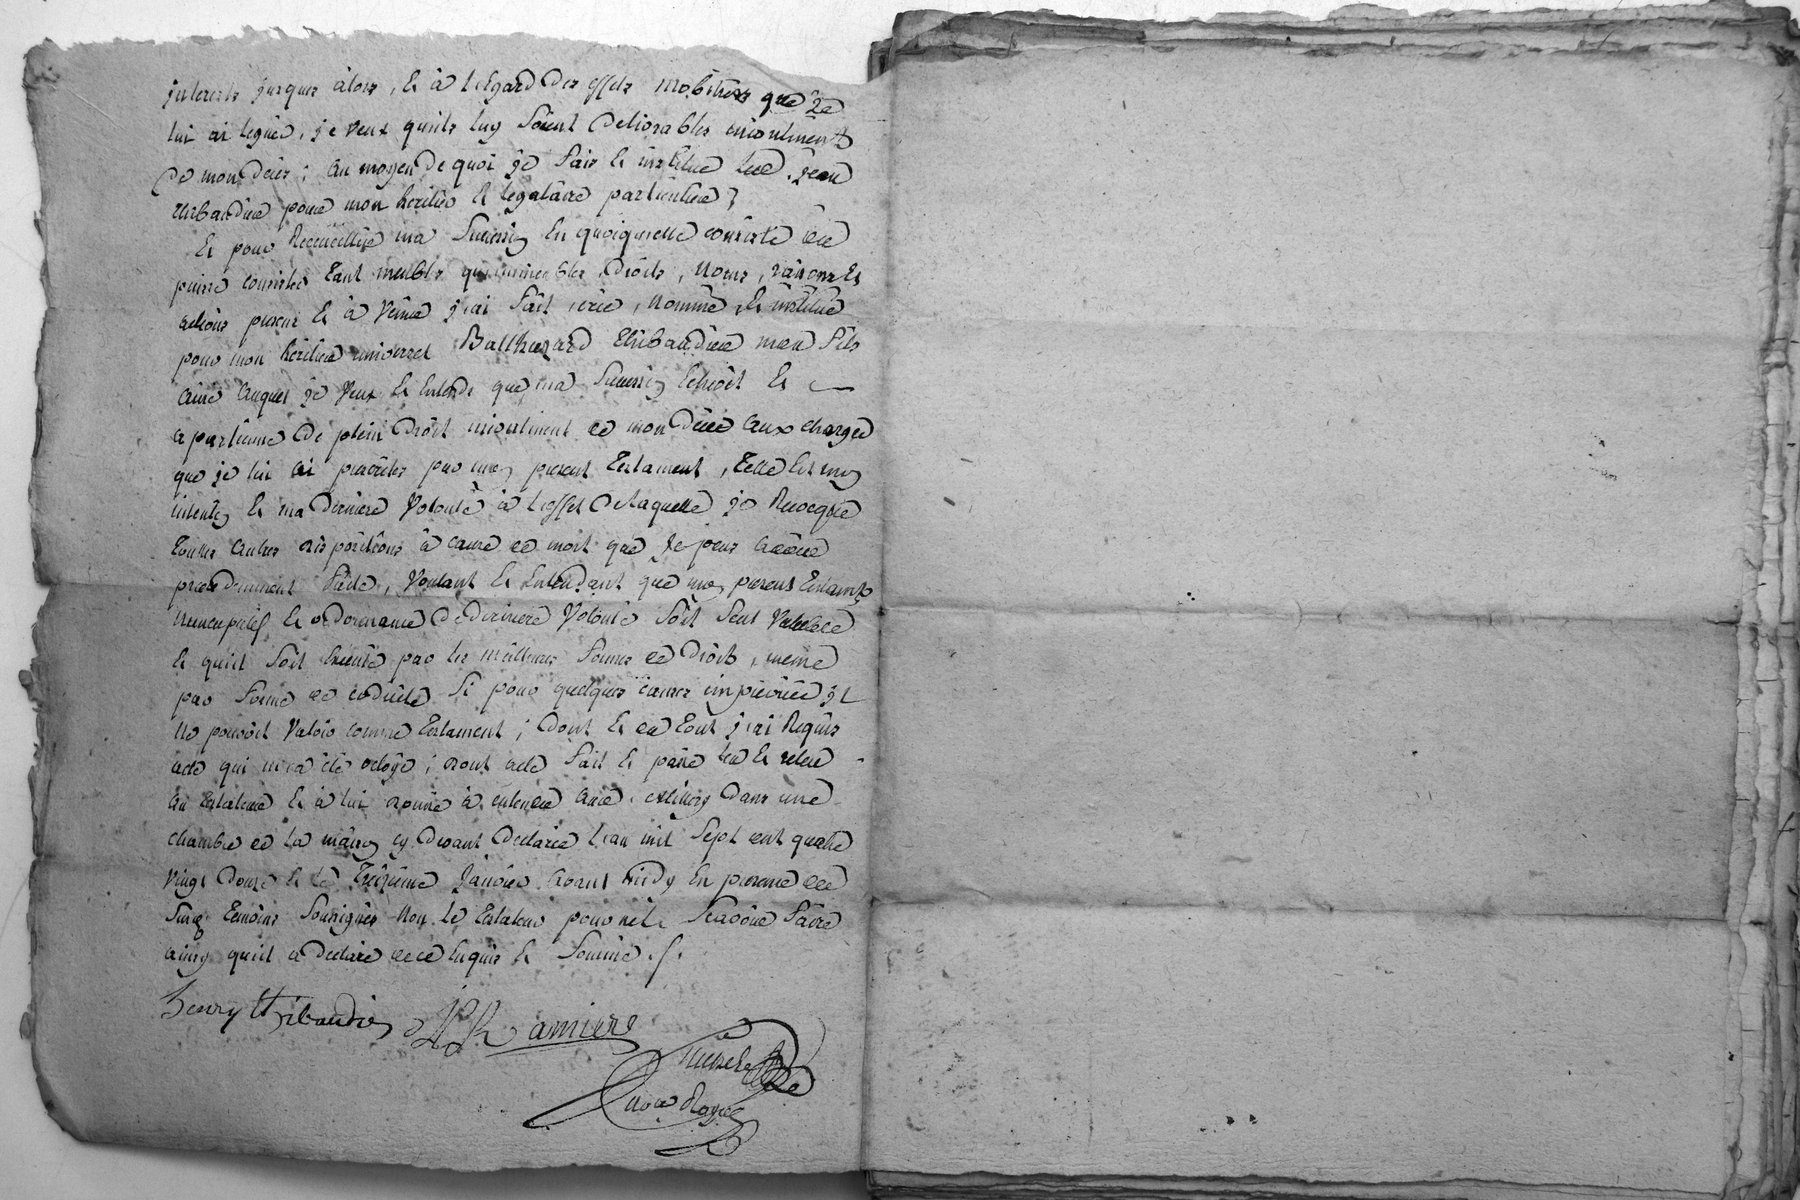 jnterets jusques alors, Et à l'egard des effets mobiliers que je
lui ai legués, je veux quils luy soient delivrables incontinent
de mon decès; au moyen de quoi je fais et institue led. jean
thibaudier pour mon heritier et legataire particulier;
Et pour Recueillir ma succession En quoiquelle consiste ou
puisse consister tant meubles qu'immeubles, droits, noms, raisons Et
actions presens Et à venir j'ai fait, crée, nommé, Et institué
pour mon héritier universel Balthazard thibaudier mon fils
ainé auquel je veux Et Entends que ma succession Echoit Et
apartienne de plein droit incontinent de mon décès aux charges
que je lui ai prescrites par mon present testament, telle Est mon
intention Et ma derniere volonté à l'effet de laquelle je Revocque
toutes autres dispositions à cause de mort que je peus avoir
precedemment faite, voulant Et Entendant que mon present testament
nuncupatif Et ordonnance de derniere volonté soit seul valable
Et quil soit Executé par les meilleures formes de droit, meme
par forme de codicile si pour quelques causes imprevües jl
ne pouvoit valoir comme testament; dont Et du tout j'ai Requis
acte qui m'a été octoyé; dont acte fait Et passé lu Et relu
au testateur Et à lui donné à entendre dans une
chambre de la maison cy devant declarée l'an mil sept cent quatre
vingt douze Et le treizieme janvier avant midy En presence de
temoins soussignés non le testateur pour ne sçavoir faire
ainsy quil a declaré de ce Enquis Et sommé ./.
henry thibaudier J R amiere
no.re Royal